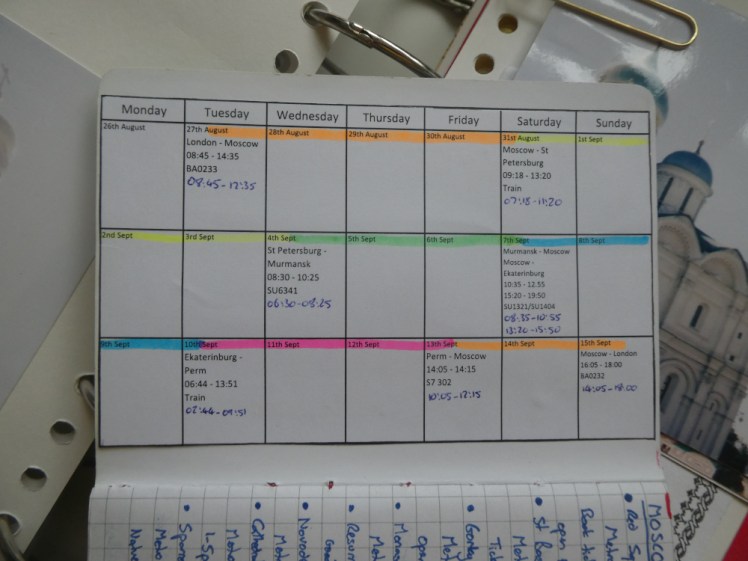 Monday Tuesday Wednesday Thursday Friday Saturday Sunday
26th August
27th August
London - Moscow
08:45 - 14:35
BA0233
08:45-12:35
28th August
29th August
30th August
31st August
Moscow - St
Petersburg
09:18 - 13:20
Train
07:18-11:20
1st Sept
2nd Sept
3rd Sept
4th Sept
St Petersburg -
Murmansk
08:30 - 10:25
SU6341
06:30-08:25
5th Sept
6th Sept
7th Sept
Murmansk - Moscow
Moscow -
Ekaterinburg
10:35 - 12:55
15:20 - 19:50
SU1321/SU1404
08:35-10:55
13:20-15:50
8th Sept
9th Sept
10th Sept
Ekaterinburg -
Perm
06:44 - 13:51
Train
02:44-09:51
11th Sept
12th Sept
13th Sept
Perm - Moscow
14:05 - 14:15
S7 302
10:05-12:15
14th Sept
15th Sept
Moscow - London
16:05 - 18:00
BA0232
14:05-18:00
MOSCO
Red Sq
Metr
Book tic
open
St Bas
Met